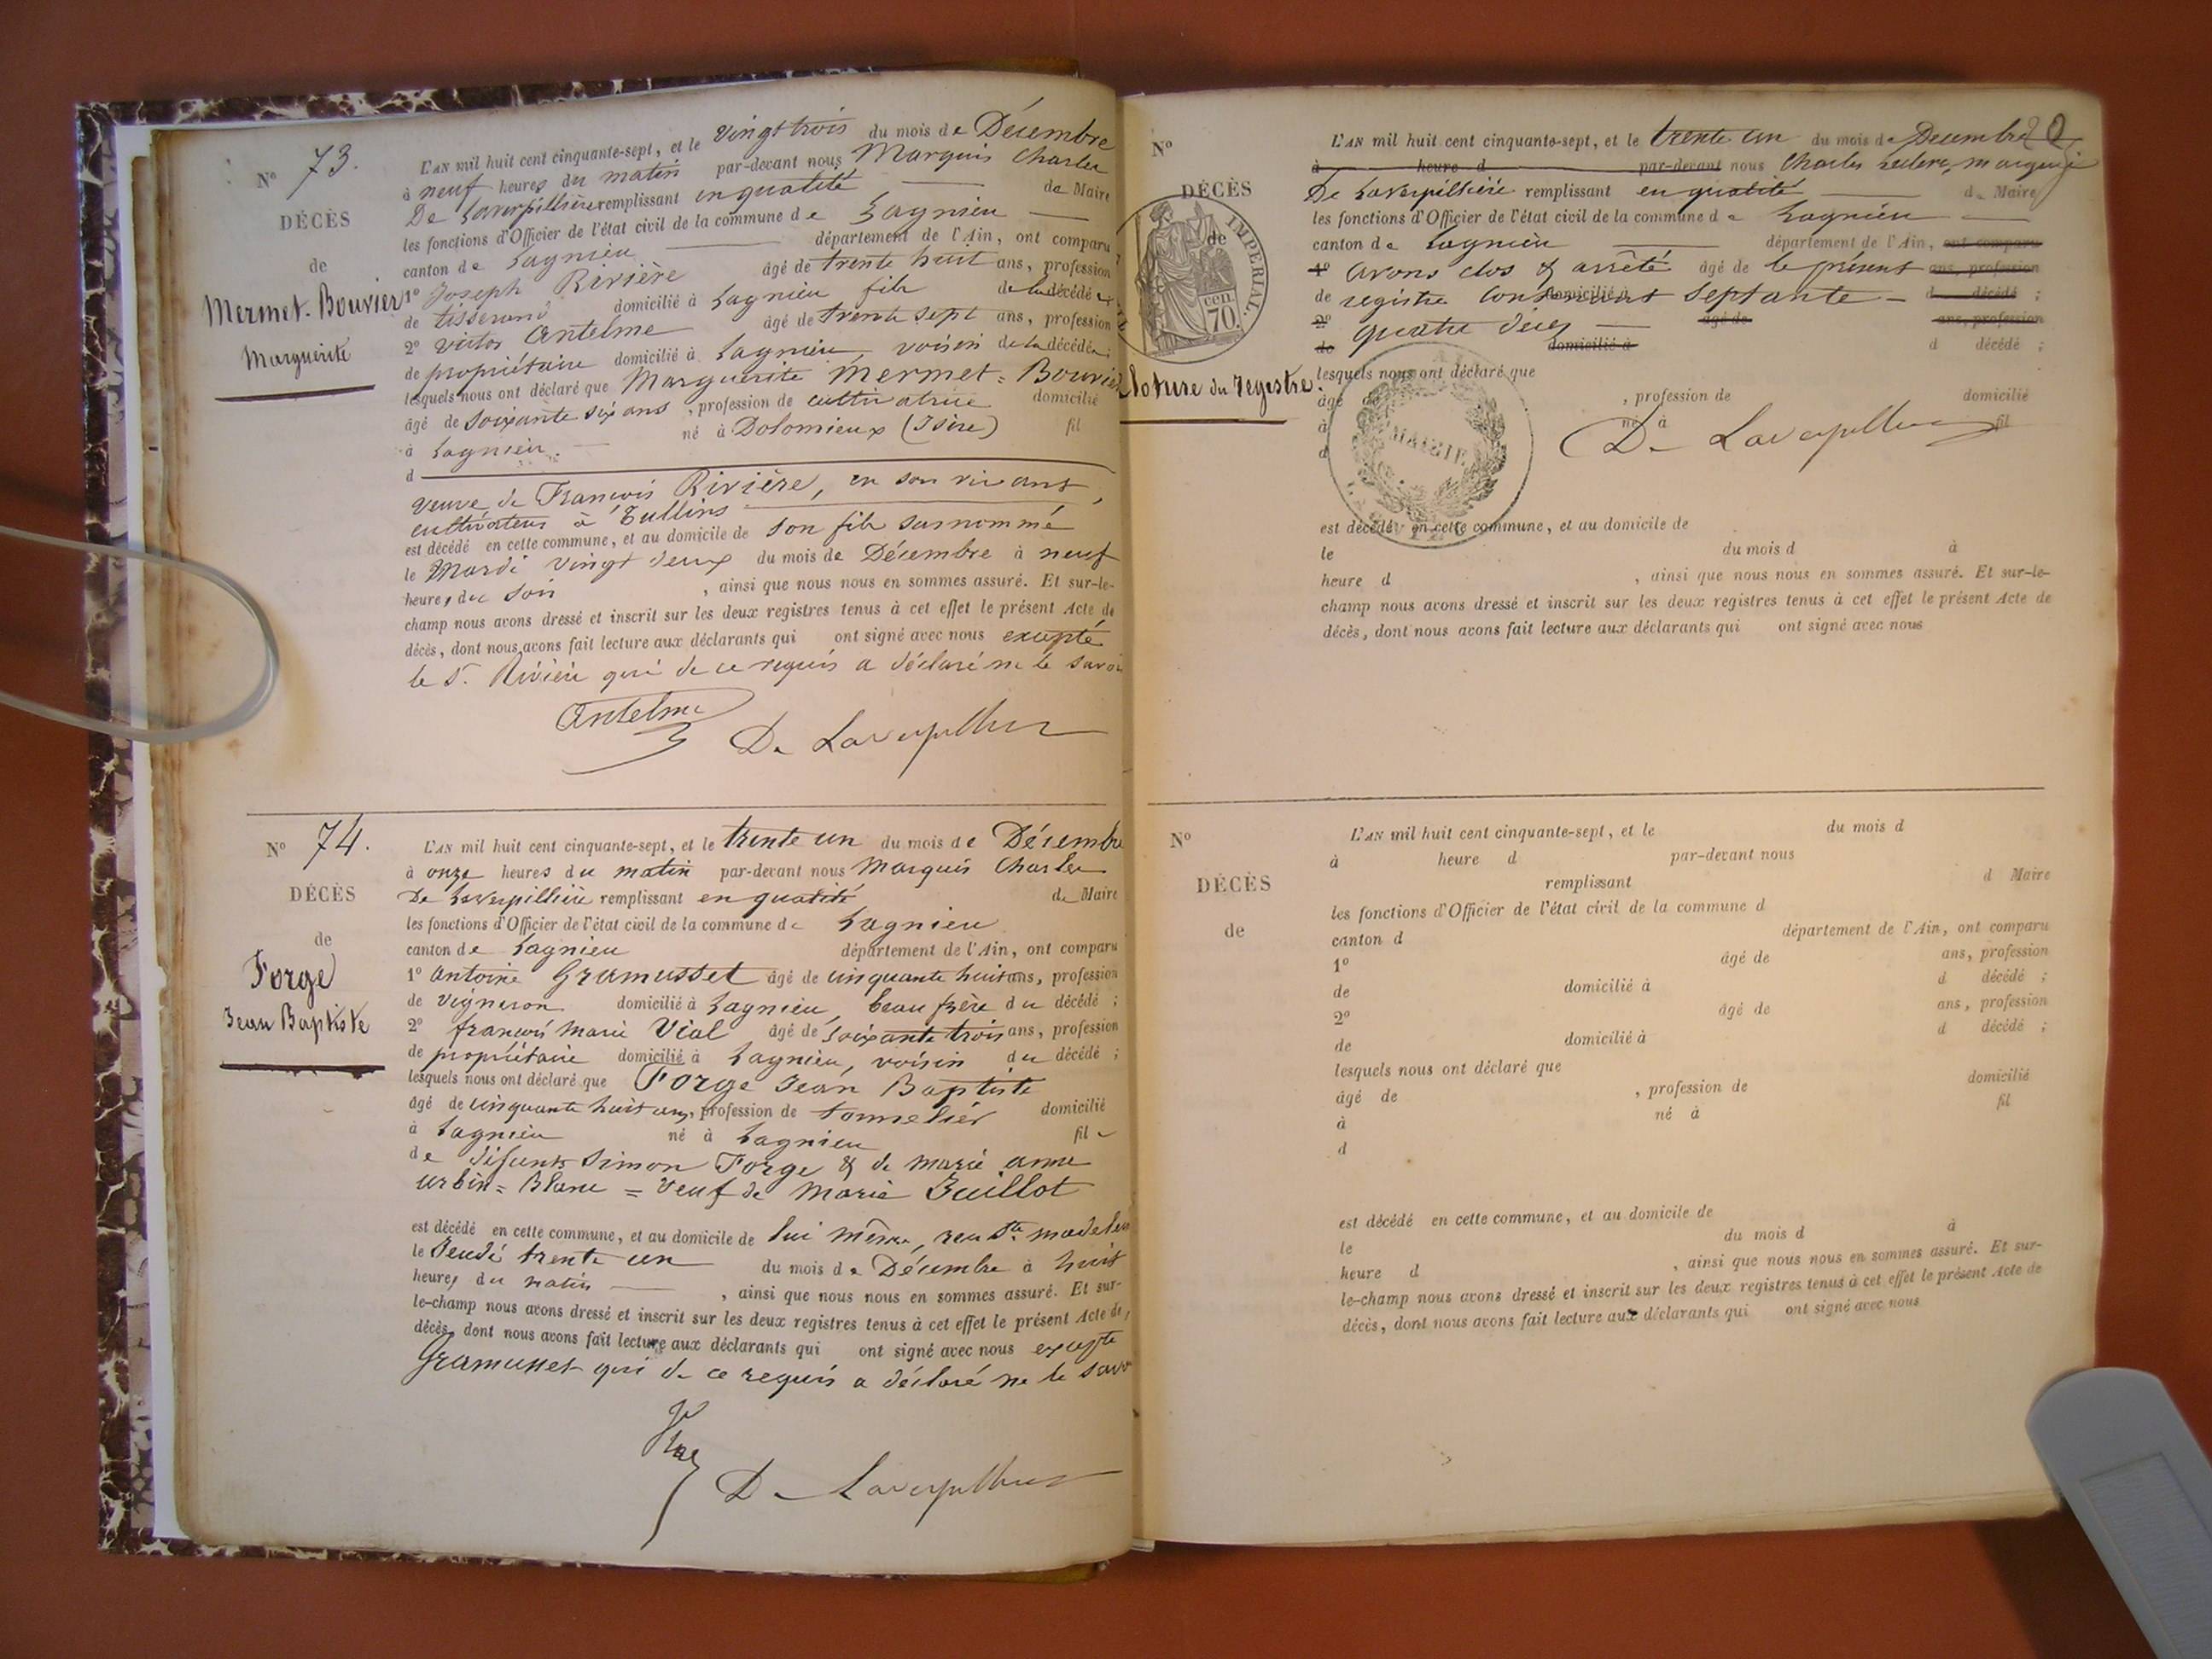 N° 73.
DÉCÈS
de
Mermet-Bouvier
Marguerite
L'AN mil huit cent cinquante-sept, et le vingt trois du mois de Décembre
à neuf heures du matin par-devant nous Marquis Charles
De Laverpillière remplissant en qualité de Maire
les fonctions d'Officier de l'état civil de la commune de Lagnieu
canton de Lagnieu département de l'Ain, ont comparu
1° Joseph Rivière âgé de trente huit ans, profession
de tisserand domicilié à Lagnieu fils de la décédée
2° victor Antelme âgé de trente sept ans, profession
de propriétaire domicilié à Lagnieu, voisin de la décédée ;
lesquels nous ont déclaré que Marguerite Mermet=Bouvier
âgé de soixante six ans, profession de cultivatrice domicilié
à Lagnieu. né à Dolomieux (Isère) fil
d
veuve de François Rivière, en son vivant,
cultivateur à Tullins
est décédé en cette commune, et au domicile de son fils susnommé
le Mardi vingt deux du mois de Décembre à neuf
heures du soir, ainsi que nous nous en sommes assuré. Et sur-le-
champ nous avons dressé et inscrit sur les deux registres tenus à cet effet le présent Acte de
décès, dont nous avons fait lecture aux déclarants qui ont signé avec nous excepté
le S. Rivière qui de ce requis a déclaré ne le savoir
Antelme
De Laverpillière
N° 74.
DÉCÈS
de
Forge
Jean Baptiste
L'AN mil huit cent cinquante-sept, et le trente un du mois de Décembre
à onze heures du matin par-devant nous Marquis Charles
De Laverpillière remplissant en qualité de Maire
les fonctions d'Officier de l'état civil de la commune de Lagnieu
canton de Lagnieu département de l'Ain, ont comparu
1° Antoine Gramusset âgé de cinquante huit ans, profession
de vigneron domicilié à Lagnieu, beau frère du décédé ;
2° françois Marie Vial âgé de soixante trois ans, profession
de propriétaire domicilié à Lagnieu, voisin du décédé ;
lesquels nous ont déclaré que Forge Jean Baptiste
âgé de cinquante huit ans, profession de tonnelier domicilié
à Lagnieu né à Lagnieu fil
de défunts Simon Forge & de Marie anne
urbin=Blanc = veuf de Marie Juillot
est décédé en cette commune, et au domicile de lui même, rue Ste
le Jeudi trente un du mois de Décembre à huit
heures du matin, ainsi que nous nous en sommes assuré. Et sur-
le-champ nous avons dressé et inscrit sur les deux registres tenus à cet effet le présent Acte de
décès, dont nous avons fait lecture aux déclarants qui ont signé avec nous excepté
Gramusset qui de ce requis a déclaré ne le savoir
De Laverpillière
N°
DÉCÈS
de
IMPÉRIAL.
cen.
70.
Cloture du registre.
L'AN mil huit cent cinquante-sept, et le trente un du mois de Decembre
à heure d par-devant nous Charles marquis
De Laverpillière remplissant en qualité de Maire
les fonctions d'Officier de l'état civil de la commune de Lagnieu
canton de Lagnieu département de l'Ain, ont comparu
1° avons clos & arrêté âgé de le présent ans, profession
de registre contenant domicilié à septante - d décédé ;
2° quatre décès âgé de ans, profession
de domicilié à d décédé ;
lesquels nous ont déclaré que
âgé de , profession de domicilié
à né à fil
d
MAIRIE
De Laverpillière
est décédé en cette commune, et au domicile de
le du mois d à
heure d , ainsi que nous nous en sommes assuré. Et sur-le-
champ nous avons dressé et inscrit sur les deux registres tenus à cet effet le présent Acte de
décès, dont nous avons fait lecture aux déclarants qui ont signé avec nous
N°
DÉCÈS
de
L'AN mil huit cent cinquante-sept, et le du mois d
à heure d par-devant nous
remplissant d Maire
les fonctions d'Officier de l'état civil de la commune d
canton d département de l'Ain, ont comparu
1° âgé de ans, profession
de domicilié à d décédé ;
2° âgé de ans, profession
de domicilié à d décédé ;
lesquels nous ont déclaré que
âgé de , profession de domicilié
à né à fil
d
est décédé en cette commune, et au domicile de
le du mois d à
heure d , ainsi que nous nous en sommes assuré. Et sur-
le-champ nous avons dressé et inscrit sur les deux registres tenus à cet effet le présent Acte de
décès, dont nous avons fait lecture aux déclarants qui ont signé avec nous